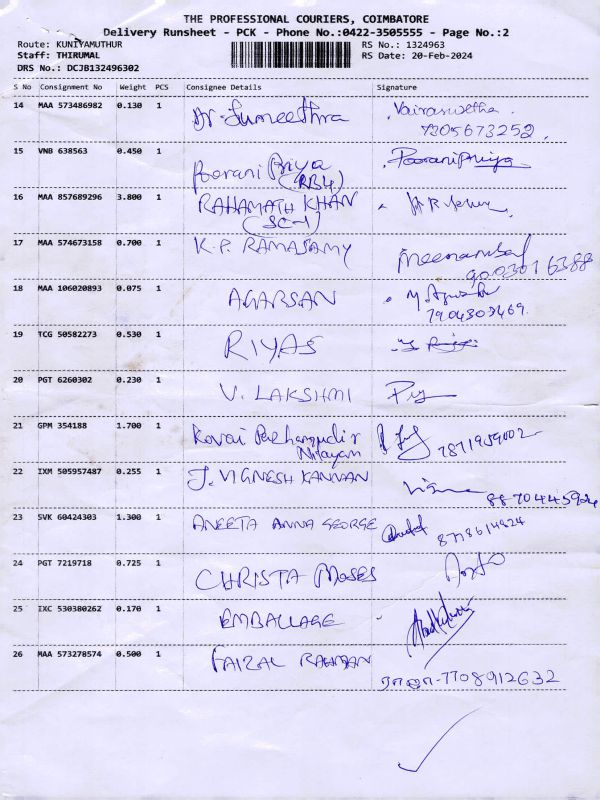 THE PROFESSIONAL COURIERS, COIMBATORE
Delivery Runsheet - PCK - Phone No.:0422-3505555 - Page No.:2
Route: KUNIYAMUTHUR
Staff: THIRUMAL
DRS No.: DCJB132496302
RS No.: 1324963
RS Date: 20-Feb-2024
S No Consignment No Weight PCS Consignee Details Signature
14 MAA 573486982 0.130 1 Dr. Sumeethra Vairaswetha
7305673252.
15 VNB 638563 0.450 1 Poorani Priya Pooranipriya
(RB4)
16 MAA 857689296 3.800 1 RAHAMATH KHAN
(SC-1)
17 MAA 574673158 0.700 1 K.P. RAMASAMY Meenambal
9003016388
18 MAA 106020893 0.075 1 AGARSAN
7904303469.
19 TCG 50582273 0.530 1 RIYAS
20 PGT 6260302 0.230 1 V. LAKSHMI
21 GPM 354188 1.700 1 Kovai
Nilayam 7871959002
22 IXM 505957487 0.255 1 J. VIGNESH KANNAN
8870445924
23 SVK 60424303 1.300 1 ANEETA ANNA GEORGE 8778614824
24 PGT 7219718 0.725 1 CHRISTA MOSES
25 IXC 530380262 0.170 1 EMBALLAGE
26 MAA 573278574 0.500 1 FAIZAL RAHMAN
ராஜா-7708912632